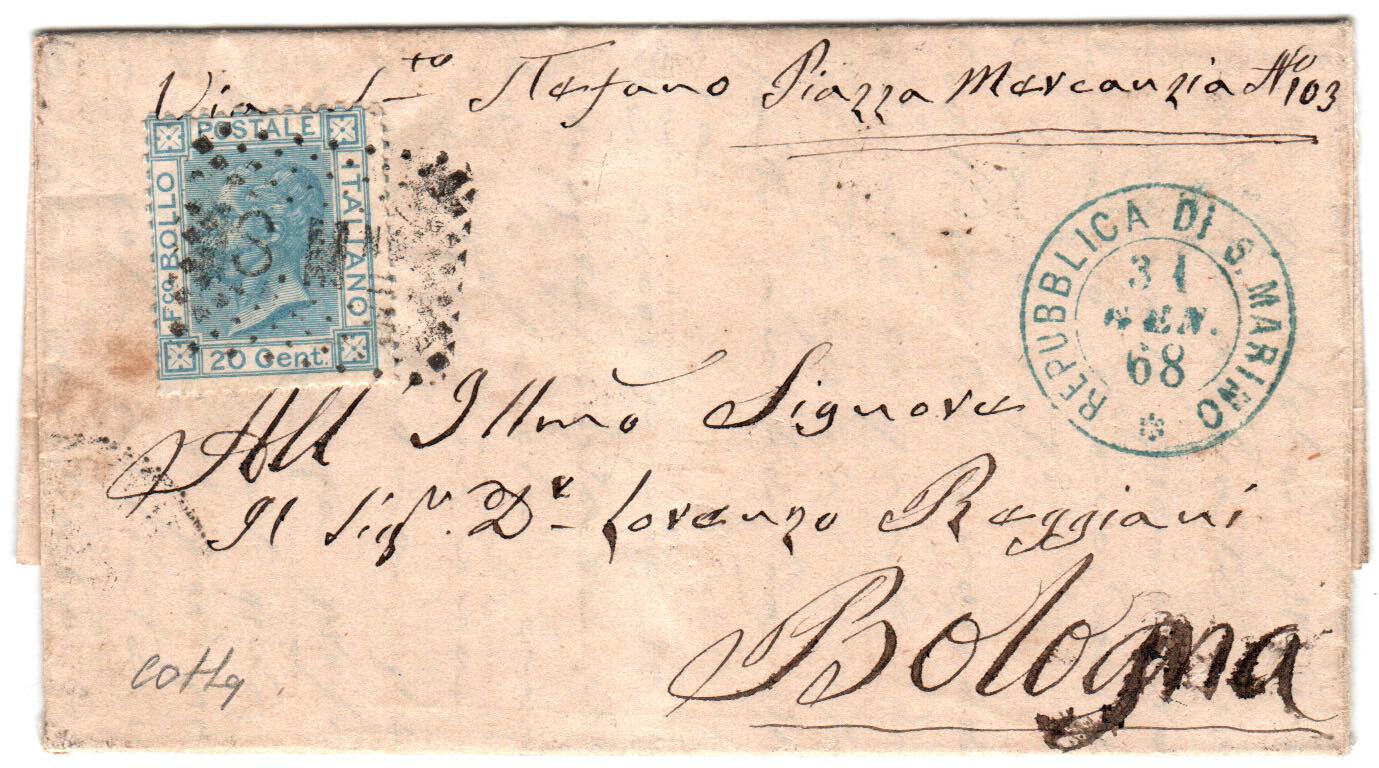 Via Sto Stefano Piazza Mercanzia No 103
POSTALE
Fco BOLLO
ITALIANO
20 Cent.
REPUBBLICA DI S. MARINO
31
GEN.
68
All Illmo Signore
Il Sigr. Dr Lorenzo Reggiani
Bologna